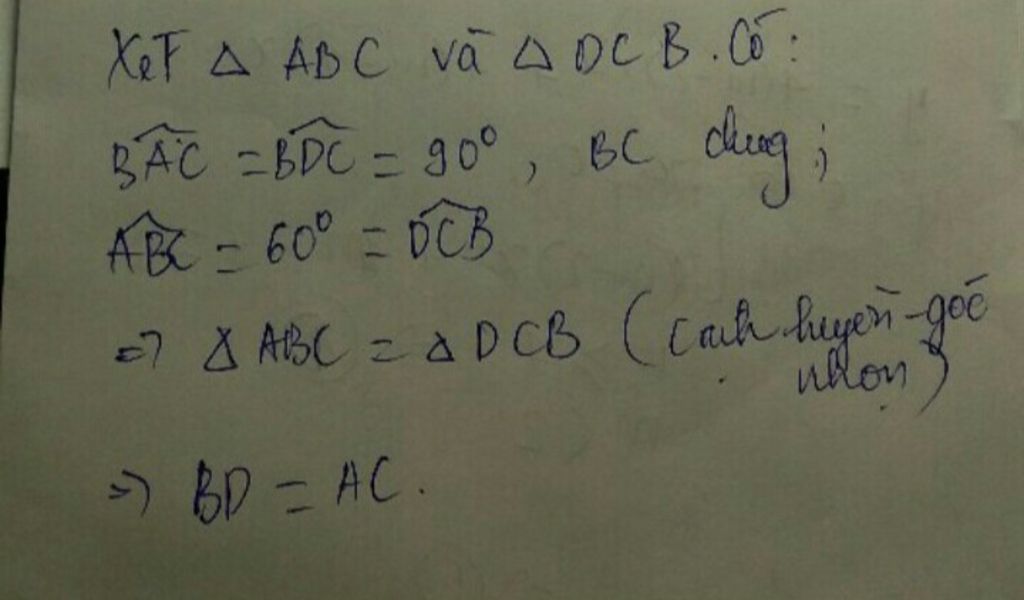 Xét △ ABC và △ DCB. Có:
BAC = BDC = 90°, BC chung;
ABC = 60° = DCB
=> △ ABC = △ DCB (cạnh huyền - góc
nhọn)
=> BD = AC.